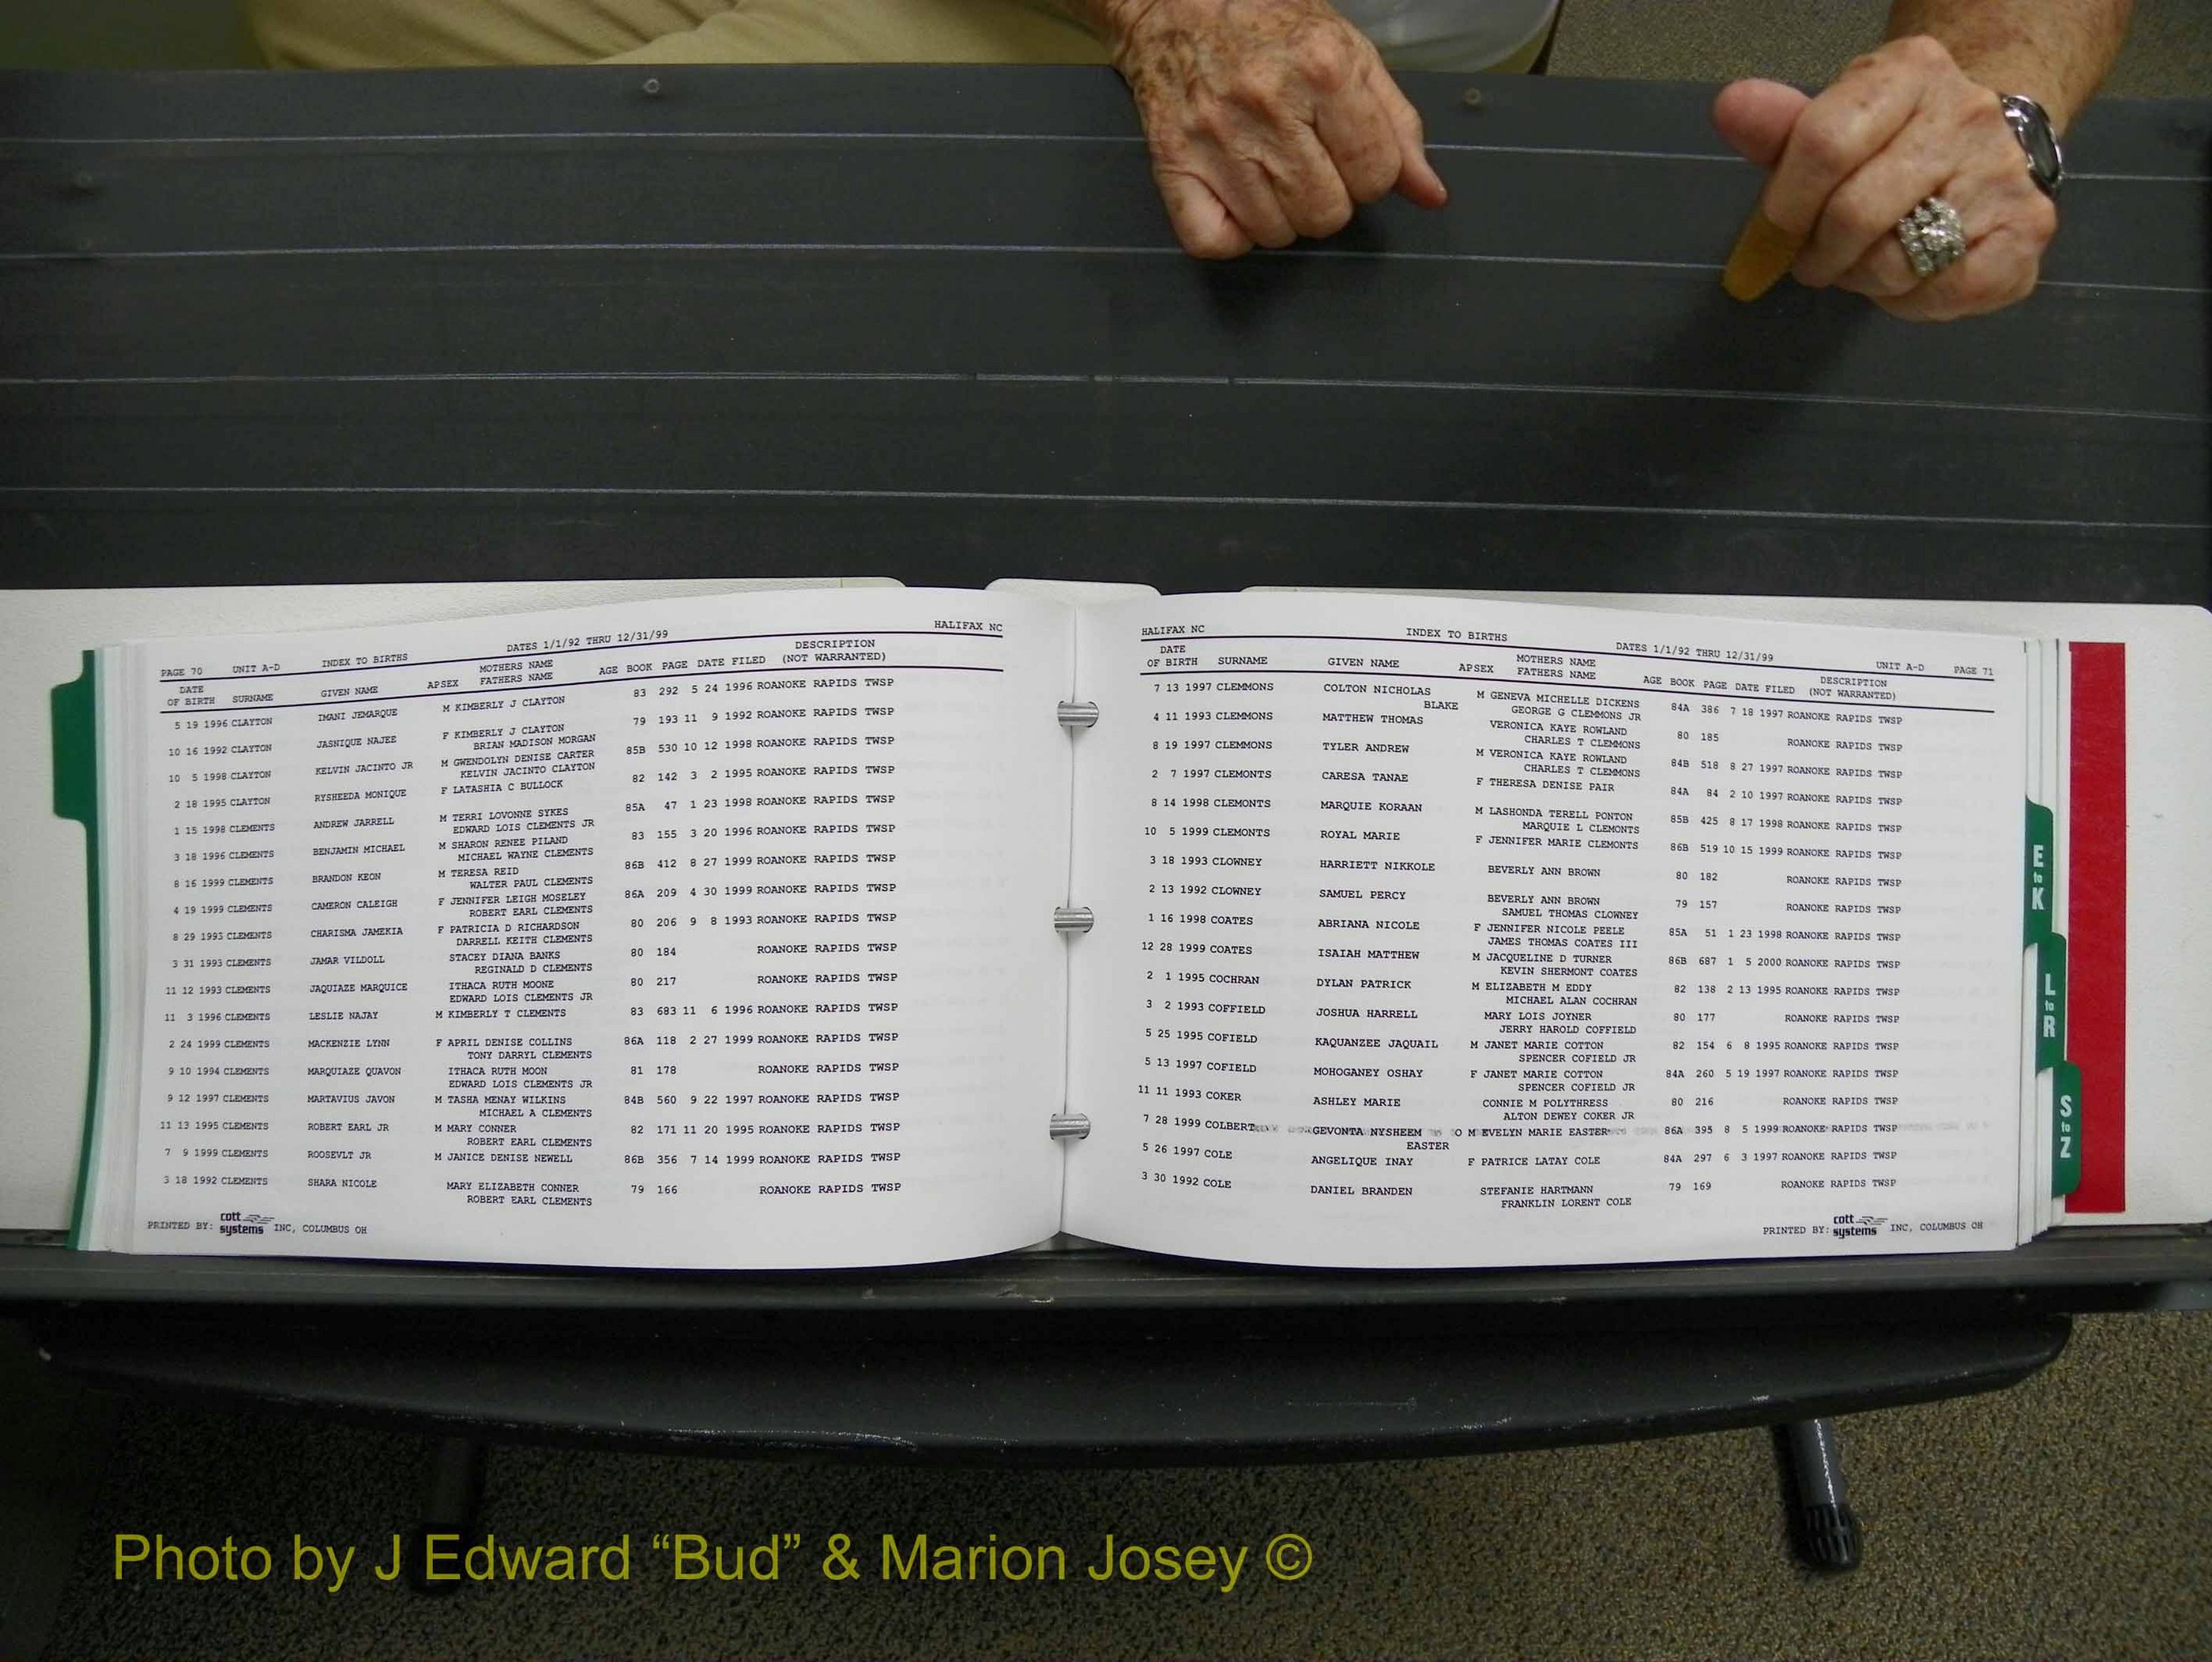 HALIFAX NC
PAGE 70 UNIT A-D INDEX TO BIRTHS DATES 1/1/92 THRU 12/31/99
DATE MOTHERS NAME DESCRIPTION
OF BIRTH SURNAME GIVEN NAME APSEX FATHERS NAME AGE BOOK PAGE DATE FILED (NOT WARRANTED)
5 19 1996 CLAYTON IMANI JEMARQUE M KIMBERLY J CLAYTON 83 292 5 24 1996 ROANOKE RAPIDS TWSP
10 16 1992 CLAYTON JASNIQUE NAJEE F KIMBERLY J CLAYTON 79 193 11 9 1992 ROANOKE RAPIDS TWSP
BRIAN MADISON MORGAN
10 5 1998 CLAYTON KELVIN JACINTO JR M GWENDOLYN DENISE CARTER 85B 530 10 12 1998 ROANOKE RAPIDS TWSP
KELVIN JACINTO CLAYTON
2 18 1995 CLAYTON RYSHEEDA MONIQUE F LATASHIA C BULLOCK 82 142 3 2 1995 ROANOKE RAPIDS TWSP
1 15 1998 CLEMENTS ANDREW JARRELL M TERRI LOVONNE SYKES 85A 47 1 23 1998 ROANOKE RAPIDS TWSP
EDWARD LOIS CLEMENTS JR
3 18 1996 CLEMENTS BENJAMIN MICHAEL M SHARON RENEE PILAND 83 155 3 20 1996 ROANOKE RAPIDS TWSP
MICHAEL WAYNE CLEMENTS
8 16 1999 CLEMENTS BRANDON KEON M TERESA REID 86B 412 8 27 1999 ROANOKE RAPIDS TWSP
WALTER PAUL CLEMENTS
4 19 1999 CLEMENTS CAMERON CALEIGH F JENNIFER LEIGH MOSELEY 86A 209 4 30 1999 ROANOKE RAPIDS TWSP
ROBERT EARL CLEMENTS
8 29 1993 CLEMENTS CHARISMA JAMEKIA F PATRICIA D RICHARDSON 80 206 9 8 1993 ROANOKE RAPIDS TWSP
DARRELL KEITH CLEMENTS
3 31 1993 CLEMENTS JAMAR VILDOLL STACEY DIANA BANKS 80 184 ROANOKE RAPIDS TWSP
REGINALD D CLEMENTS
11 12 1993 CLEMENTS JAQUIAZE MARQUICE ITHACA RUTH MOONE 80 217 ROANOKE RAPIDS TWSP
EDWARD LOIS CLEMENTS JR
11 3 1996 CLEMENTS LESLIE NAJAY M KIMBERLY T CLEMENTS 83 683 11 6 1996 ROANOKE RAPIDS TWSP
2 24 1999 CLEMENTS MACKENZIE LYNN F APRIL DENISE COLLINS 86A 118 2 27 1999 ROANOKE RAPIDS TWSP
TONY DARRYL CLEMENTS
9 10 1994 CLEMENTS MARQUIAZE QUAVON ITHACA RUTH MOON 81 178 ROANOKE RAPIDS TWSP
EDWARD LOIS CLEMENTS JR
9 12 1997 CLEMENTS MARTAVIUS JAVON M TASHA MENAY WILKINS 84B 560 9 22 1997 ROANOKE RAPIDS TWSP
MICHAEL A CLEMENTS
11 13 1995 CLEMENTS ROBERT EARL JR M MARY CONNER 82 171 11 20 1995 ROANOKE RAPIDS TWSP
ROBERT EARL CLEMENTS
7 9 1999 CLEMENTS ROOSEVLT JR M JANICE DENISE NEWELL 86B 356 7 14 1999 ROANOKE RAPIDS TWSP
3 18 1992 CLEMENTS SHARA NICOLE MARY ELIZABETH CONNER 79 166 ROANOKE RAPIDS TWSP
ROBERT EARL CLEMENTS
PRINTED BY: cott systems INC, COLUMBUS OH
HALIFAX NC INDEX TO BIRTHS DATES 1/1/92 THRU 12/31/99 UNIT A-D PAGE 71
DATE MOTHERS NAME DESCRIPTION
OF BIRTH SURNAME GIVEN NAME APSEX FATHERS NAME AGE BOOK PAGE DATE FILED (NOT WARRANTED)
7 13 1997 CLEMMONS COLTON NICHOLAS M GENEVA MICHELLE DICKENS 84A 386 7 18 1997 ROANOKE RAPIDS TWSP
BLAKE GEORGE G CLEMMONS JR
4 11 1993 CLEMMONS MATTHEW THOMAS VERONICA KAYE ROWLAND 80 185 ROANOKE RAPIDS TWSP
CHARLES T CLEMMONS
8 19 1997 CLEMMONS TYLER ANDREW M VERONICA KAYE ROWLAND 84B 518 8 27 1997 ROANOKE RAPIDS TWSP
CHARLES T CLEMMONS
2 7 1997 CLEMONTS CARESA TANAE F THERESA DENISE PAIR 84A 84 2 10 1997 ROANOKE RAPIDS TWSP
8 14 1998 CLEMONTS MARQUIE KORAAN M LASHONDA TERELL PONTON 85B 425 8 17 1998 ROANOKE RAPIDS TWSP
MARQUIE L CLEMONTS
10 5 1999 CLEMONTS ROYAL MARIE F JENNIFER MARIE CLEMONTS 86B 519 10 15 1999 ROANOKE RAPIDS TWSP
3 18 1993 CLOWNEY HARRIETT NIKKOLE BEVERLY ANN BROWN 80 182 ROANOKE RAPIDS TWSP
2 13 1992 CLOWNEY SAMUEL PERCY BEVERLY ANN BROWN 79 157 ROANOKE RAPIDS TWSP
SAMUEL THOMAS CLOWNEY
1 16 1998 COATES ABRIANA NICOLE F JENNIFER NICOLE PEELE 85A 51 1 23 1998 ROANOKE RAPIDS TWSP
JAMES THOMAS COATES III
12 28 1999 COATES ISAIAH MATTHEW M JACQUELINE D TURNER 86B 687 1 5 2000 ROANOKE RAPIDS TWSP
KEVIN SHERMONT COATES
2 1 1995 COCHRAN DYLAN PATRICK M ELIZABETH M EDDY 82 138 2 13 1995 ROANOKE RAPIDS TWSP
MICHAEL ALAN COCHRAN
3 2 1993 COFFIELD JOSHUA HARRELL MARY LOIS JOYNER 80 177 ROANOKE RAPIDS TWSP
JERRY HAROLD COFFIELD
5 25 1995 COFIELD KAQUANZEE JAQUAIL M JANET MARIE COTTON 82 154 6 8 1995 ROANOKE RAPIDS TWSP
SPENCER COFIELD JR
5 13 1997 COFIELD MOHOGANEY OSHAY F JANET MARIE COTTON 84A 260 5 19 1997 ROANOKE RAPIDS TWSP
SPENCER COFIELD JR
11 11 1993 COKER ASHLEY MARIE CONNIE M POLYTHRESS 80 216 ROANOKE RAPIDS TWSP
ALTON DEWEY COKER JR
7 28 1999 COLBERT GEVONTA NYSHEEM O M EVELYN MARIE EASTER 86A 395 8 5 1999 ROANOKE RAPIDS TWSP
EASTER
5 26 1997 COLE ANGELIQUE INAY F PATRICE LATAY COLE 84A 297 6 3 1997 ROANOKE RAPIDS TWSP
3 30 1992 COLE DANIEL BRANDEN STEFANIE HARTMANN 79 169 ROANOKE RAPIDS TWSP
FRANKLIN LORENT COLE
PRINTED BY: cott systems INC, COLUMBUS OH
E to K
L to R
S to Z
Photo by J Edward “Bud” & Marion Josey ©